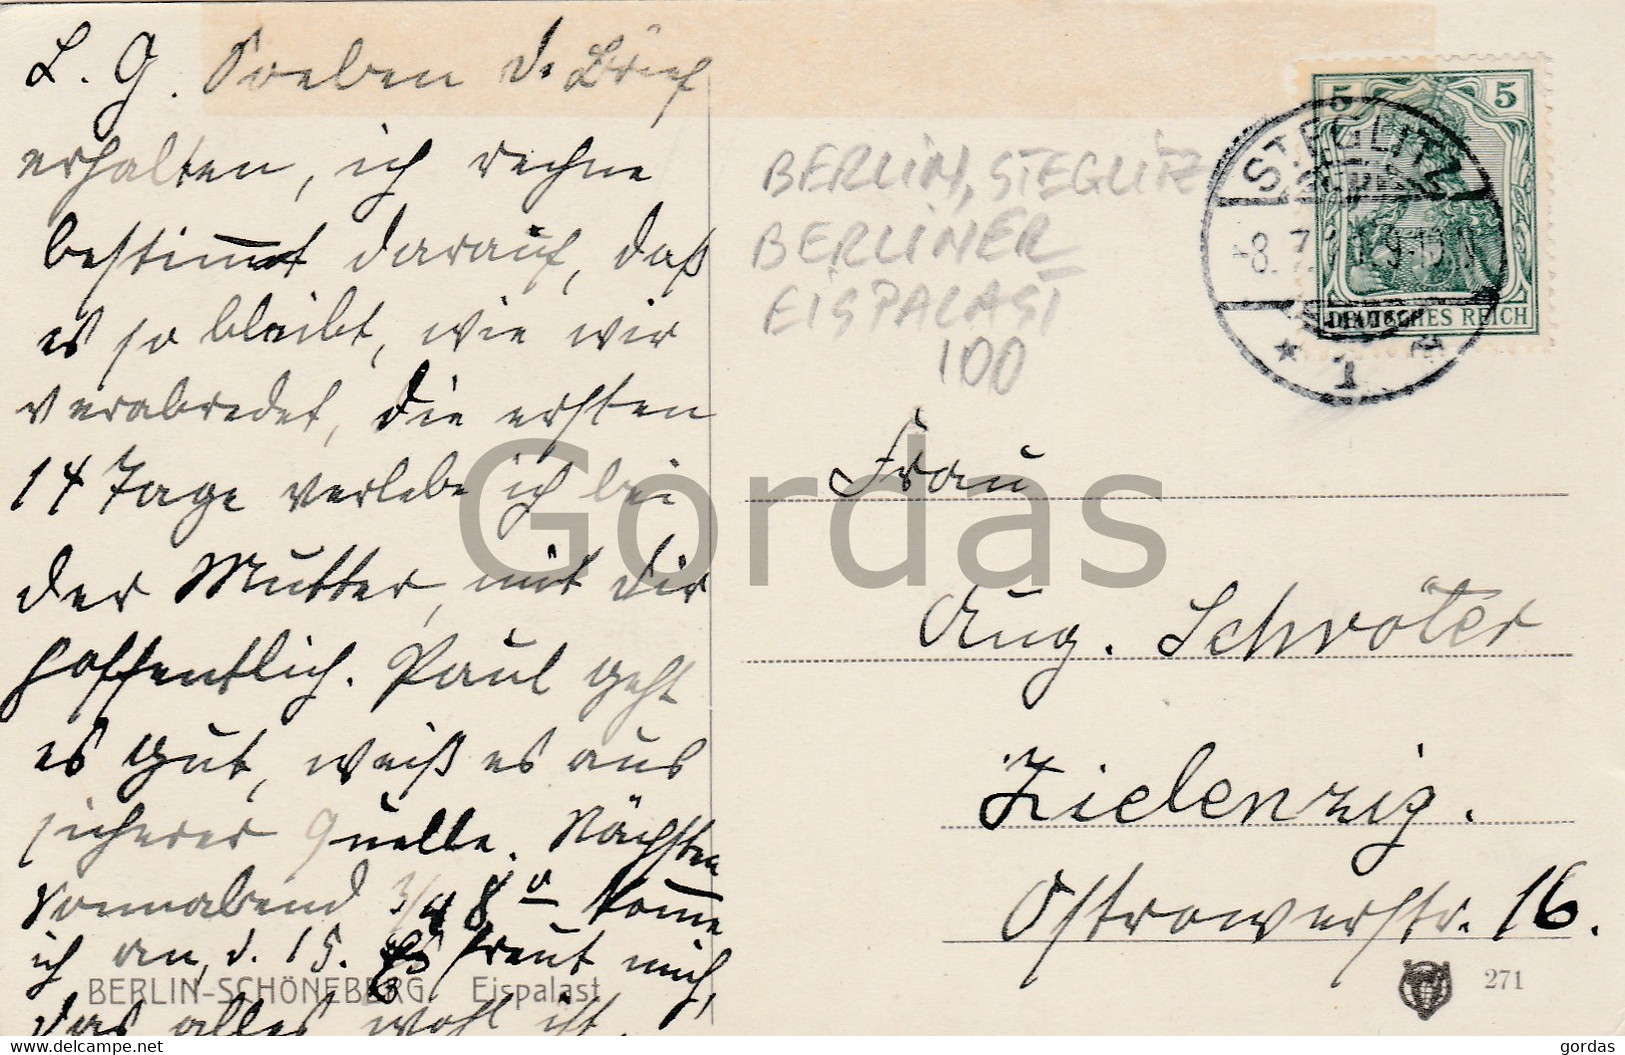 L. G. Soeben d. Brief
erhalten, ich rechne
bestimmt darauf, daß
es so bleibt, wie wir
verabredet, die ersten
14 Tage verlebe ich bei
der Mutter, mit Dir
hoffentlich. Paul geht
es gut, weiß es aus
sicherer Quelle. Nächsten
Sonnabend 3/4 8 komme
ich an, d. 15. Es freut mich,
das alles wohl ist.
BERLIN-SCHÖNEBERG. Eispalast
BERLIN, STEGLITZ
BERLINER
EISPALAST
100
5 5
DEUTSCHES REICH
STEGLITZ
8.7. 9-10
* 1 *
Frau
Aug. Schröter
Zielenzig.
Ostrowerstr. 16.
271
Gordas
delcampe.net
gordas